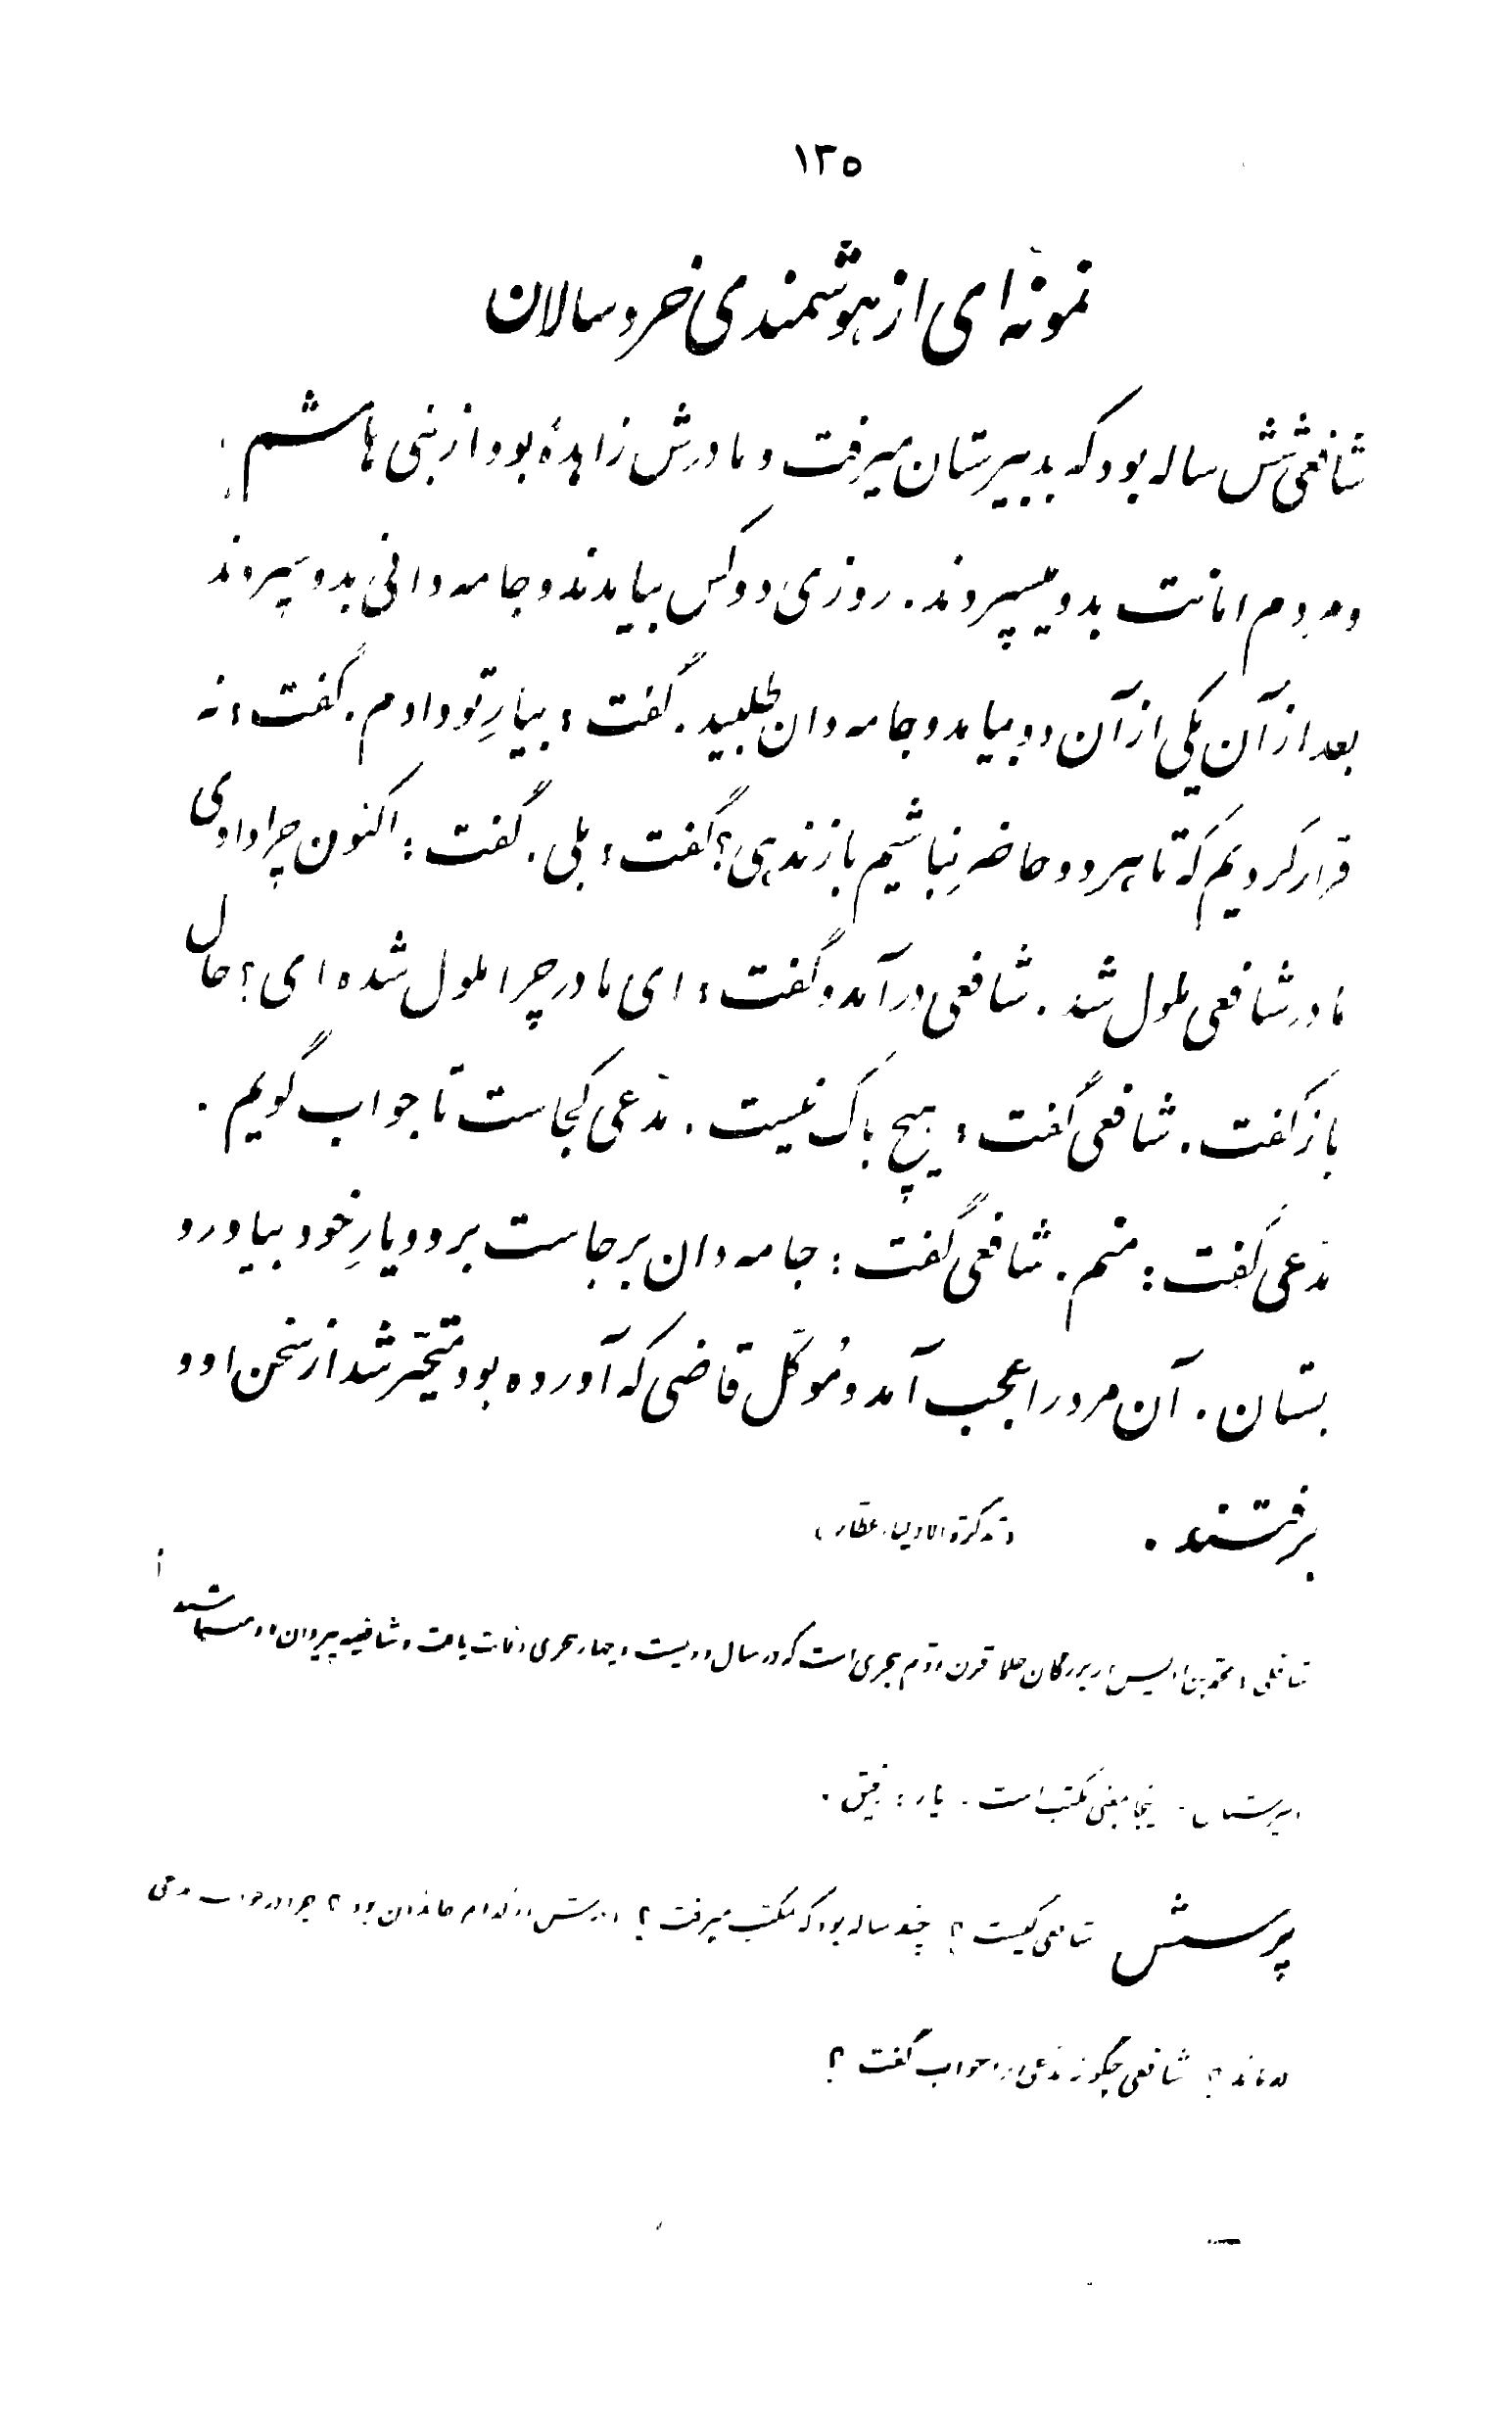 ۱۲۵
نمونه‌ای از هوشمندی خردسالان
شافعی شش ساله بود که بدبیرستان میرفت و مادرش زاهدهٔ بود از بنی هاشم
و مردم امانت بدو میسپردند. روزی دو کس بیامدند و جامه دانی بدو سپردند
بعد از آن یکی از آن دو بیامد و جامه دان طلبید. گفت: بیارِ تو دادم. گفت: نه
قرار کردیم که تا هر دو حاضر نباشیم باز ندهی؟ گفت: بلی. گفت: اکنون چرا دادی
مادر شافعی ملول شد. شافعی درآمد و گفت: ای مادر چرا ملول شده ای؟ حال
بازگفت. شافعی گفت: هیچ باک نیست. مدّعی کجاست تا جواب گویم.
مدّعی گفت: منم. شافعی گفت: جامه دان برجاست برو و یارِ خود بیاور و
بستان. آن مرد را عجب آمد و مُوکّل قاضی که آورده بود متحیّر شد از سخن او و
برفتند. (تذکرة الاولیاء عطار)
شافعی: محمّد بن ادریس از بزرگان علما قرن دوّم هجری است که در سال دویست و چهار هجری وفات یافت و شافعیه پیروان او میباشند
دبیرستان: اینجا بمعنی مکتب است. یار: رفیق.
پرسش شافعی کیست؟ چند ساله بود که بمکتب میرفت؟ مادرش از کدام خاندان بود؟ چرا در جواب مدعی
درماند؟ شافعی چگونه مدّعی را جواب گفت؟